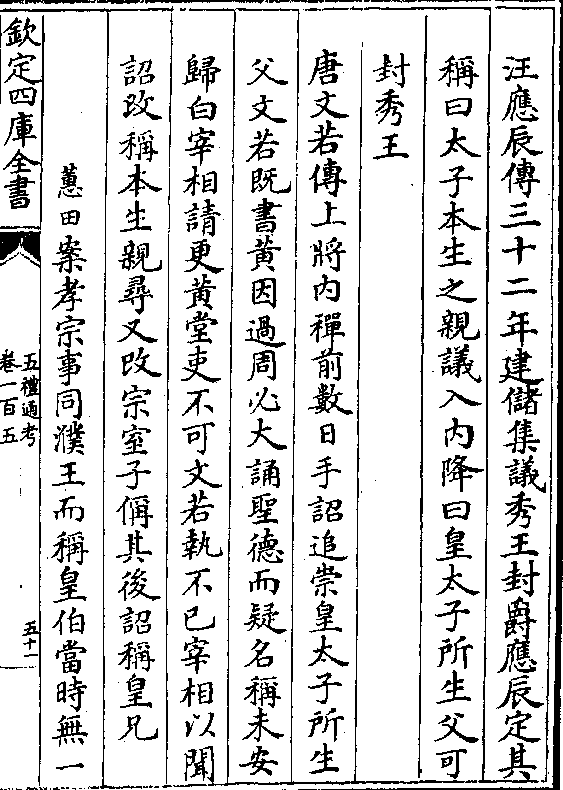 汪應辰傳三十二年建儲集議秀王封爵應辰定其
稱曰太子本生之親議入内降曰皇太子所生父可
封秀王
唐文若傳上將内禪前數日手詔追崇皇太子所生
父文若既書黄因過周必大誦聖德而疑名稱未安
歸白宰相請更黄堂吏不可文若執不已宰相以聞
詔改稱本生親尋又改宗室子偁其後詔稱皇兄
蕙田案孝宗事同濮王而稱皇伯當時無一
欽定四庫全書
五禮通考
卷一百五
五十一